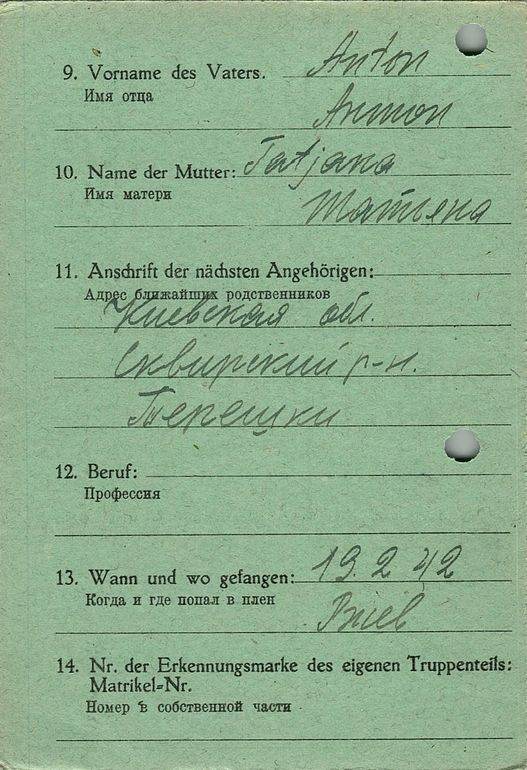 9. Vorname des Vaters. Anton
Имя отца Антон
10. Name der Mutter: Tatjana
Имя матери Татьяна
11. Anschrift der nächsten Angehörigen:
Адрес ближайших родственников
Киевская обл.
Сквирский р-н.
Терешки
12. Beruf:
Профессия
13. Wann und wo gefangen: 19. 2 42
Когда и где попал в плен
14. Nr. der Erkennungsmarke des eigenen Truppenteils:
Matrikel=Nr.
Номер в собственной части